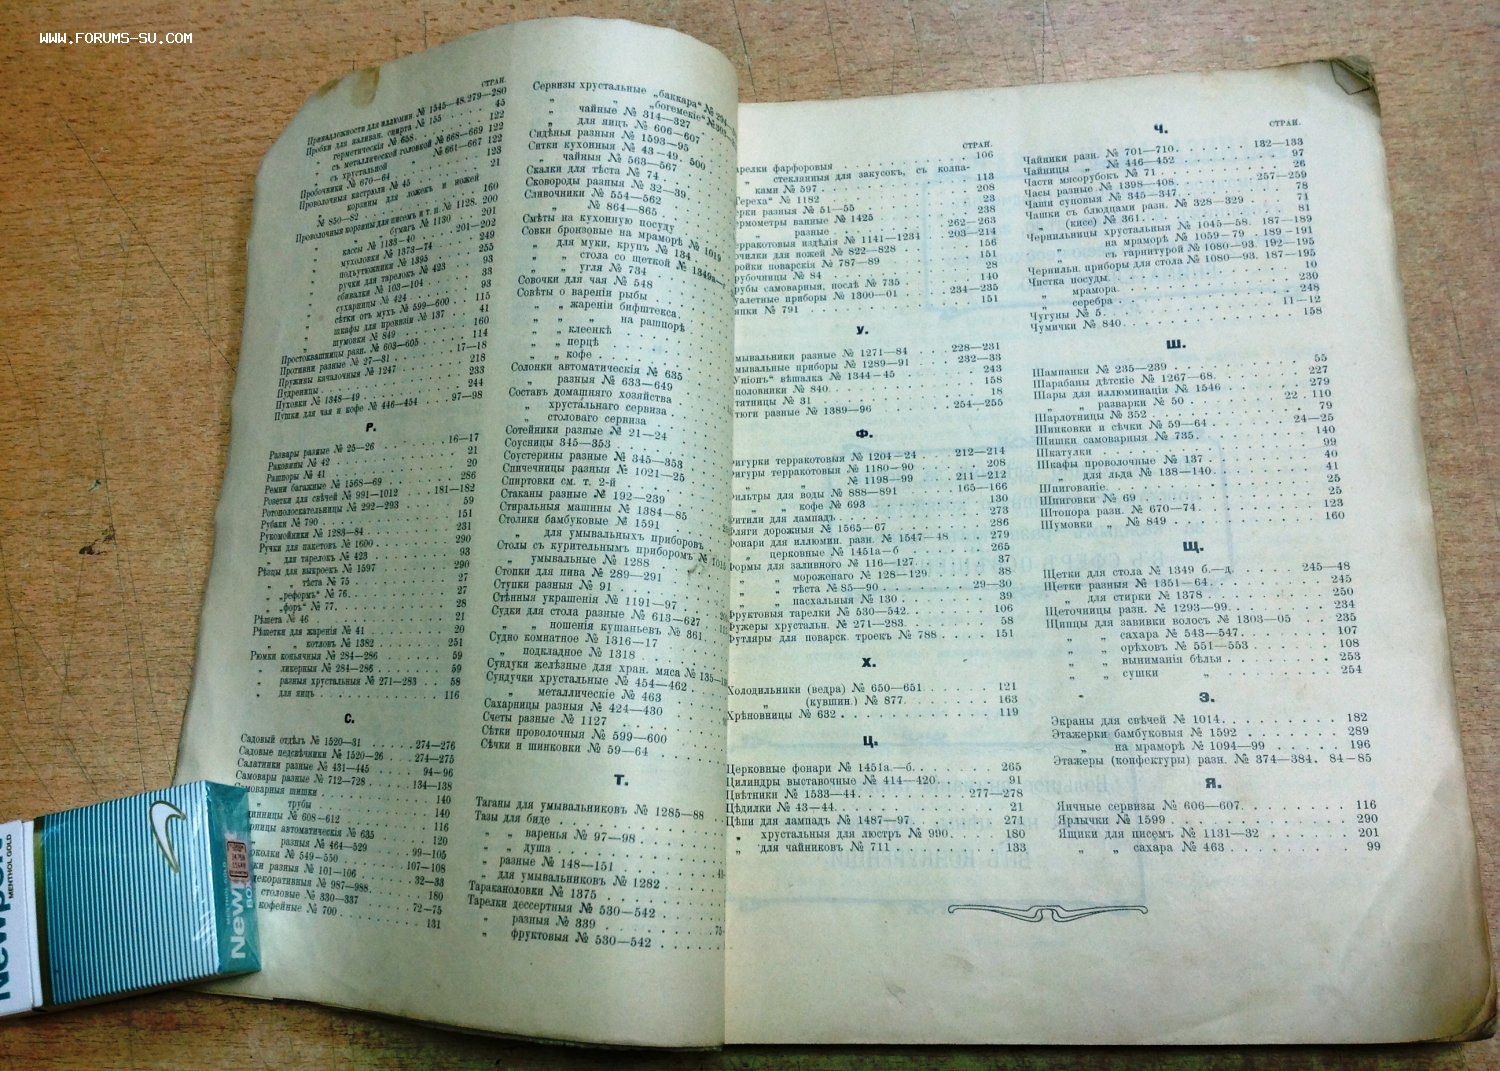 WWW.FORUMS-SU.COM
СТРАН.
Принадлежности для иллюмин № 1545—48. 279—280
Пробки для наливан. спирта № 155 45
герметическія № 658 122
„ съ металлической головкой № 668—669 122
„ съ хрустальной „ № 661—667 122
Пробочники № 670—64 123
Проволочныя кастроли № 45 21
„ корзины для ложекъ и ножей
№ 850—82 160
Проволочныя корзины для писемъ и т. п. № 1128. 200
„ „ бумагъ № 1130 201
„ кассы № 1133—40 201—202
„ мухоловки № 1373—74 249
„ подъутюжники № 1395 255
„ ручки для тарелокъ № 423 93
„ сбивалки № 103—104 33
„ сухарницы № 424 93
„ сѣтки отъ мухъ № 599—600 115
„ шкафы для провизіи № 137 41
„ шумовки № 849 160
Простоквашницы разн. № 603—605 114
Противни разные № 27—31 17—18
Пружины качалочныя № 1247 218
Пудреницы 233
Пуховки № 1348—49 244
Пушки для чая и кофе № 446—454 97—98
Р.
Развары разные № 25—26 16—17
Раковины № 42 21
Рашпоры № 41 20
Ремни багажные № 1568—69 286
Розетки для свѣчей № 991—1012 181—182
Ротополоскательницы № 292—293 59
Рубаки № 790 151
Рукомойники № 1283—84 231
Ручки для пакетовъ № 1600 290
„ для тарелокъ № 423 93
Рѣзцы для выкроекъ № 1597 290
„ тѣста № 75 27
„ „реформъ“ № 76 27
„ „форъ“ № 77 28
Рѣшета № 46 21
Рѣшетки для жаренія № 41 20
„ „ котловъ № 1382 251
Рюмки коньячныя № 284—286 59
„ ликерныя № 284—286 59
„ разныя хрустальныя № 271—283 58
„ для яицъ 116
С.
Садовый отдѣлъ № 1520—31 274—276
Садовые подсвѣчники № 1520—26 274—275
Салатники разные № 431—445 94—96
Самовары разные № 712—728 134—138
Самоварныя шишки 140
„ трубы 140
№ 608—612 116
автоматическія № 635 120
разныя № 464—529 99—105
№ 549—550 107—108
разныя № 101—106 32—33
декоративныя № 987—988 180
столовые № 330—337 72—75
кофейные № 700 131
Сервизы хрустальные „баккара“ №
„ „ „богемскіе“ №
„ чайные № 314—327
„ для яицъ № 606—607
Сидѣнья разныя № 1593—95
Ситки кухонныя № 43—49. 500
„ чайныя № 563—567
Скалки для тѣста № 74
Сковороды разныя № 32—39
Сливочники № 554—562
„ № 864—865
Смѣты на кухонную посуду
Совки бронзовые на мраморѣ № 1019
„ для муки, крупъ № 134
„ „ стола со щеткой № 1349а—
„ „ угля № 734
Совочки для чая № 548
Совѣты о вареніи рыбы
„ „ жареніи бифштекса
„ „ „ на рашпорѣ
„ „ клеенкѣ
„ „ перцѣ
„ „ кофе
Солонки автоматическія № 635
„ разныя № 633—649
Составъ домашняго хозяйства
„ хрустальнаго сервиза
„ столоваго сервиза
Сотейники разные № 21—24
Соусницы 345—353
Соустерины разные № 345—353
Спичечницы разныя № 1021—25
Спиртовки см. т. 2-й
Стаканы разные № 192—239
Стиральныя машины № 1384—85
Столики бамбуковые № 1591
„ для умывальныхъ приборовъ
Столы съ курительнымъ приборомъ № 1015
„ умывальные № 1288
Стопки для пива № 289—291
Ступки разныя № 91
Стѣнныя украшенія № 1191—97
Судки для стола разные № 613—627
„ „ ношенія кушаньевъ № 361
Судно комнатное № 1316—17
„ подкладное № 1318
Сундуки желѣзные для хран. мяса № 135—
Сундучки хрустальные № 454—462
„ металлическіе № 463
Сахарницы разныя № 424—430
Счеты разные № 1127
Сѣтки проволочныя № 599—600
Сѣчки и шинковки № 59—64
Т.
Таганы для умывальниковъ № 1285—88
Тазы для биде
„ „ варенья № 97—98
„ „ душа
„ разные № 148—151
„ для умывальниковъ № 1282
Тараканоловки № 1375
Тарелки дессертныя № 530—542
„ разныя № 339
„ фруктовыя № 530—542
СТРАН.
арелки фарфоровыя 106
„ стеклянныя для закусокъ, съ колпа-
ками № 597 113
ереха“ № 1182 208
ерки разныя № 51—55 23
ермометры ванные № 1425 238
„ разные 262—263
ерракотовыя издѣлія № 1141—1234 203—214
очилки для ножей № 822—828 156
ройки поварскія № 787—89 151
рубочницы № 84 28
рубы самоварныя, послѣ № 735 140
уалетные приборы № 1300—01 234—235
япки № 791 151
У.
мывальники разные № 1271—84 228—231
мывальные приборы № 1289—91 232—33
Уніонъ“ вѣшалка № 1344—45 243
половники № 840 158
тятницы № 31 18
тюги разные № 1389—96 254—255
Ф.
игурки терракотовыя № 1204—24 212—214
игуры терракотовыя № 1180—90 208
„ „ № 1198—99 211—212
ильтры для воды № 888—891 165—166
„ „ кофе № 693 130
итили для лампадъ 273
ляги дорожныя № 1565—67 286
онари для иллюмин. разн. № 1547—48 279
„ церковные № 1451а—б 265
Формы для заливного № 116—127 37
„ „ мороженаго № 128—129 38
„ „ тѣста № 85—90 29—30
„ „ пасхальныя № 130 39
Фруктовыя тарелки № 530—542 106
Фужеры хрустальн. № 271—283 58
Футляры для поварск. троекъ № 788 151
Х.
Холодильники (ведра) № 650—651 121
„ (кувшин.) № 877 163
Хрѣновницы № 632 119
Ц.
Церковные фонари № 1451а.—б. 265
Цилиндры выставочные № 414—420 91
Цвѣтники № 1533—44 277—278
Цѣдилки № 43—44 21
Цѣпи для лампадъ № 1487—97 271
„ хрустальныя для люстръ № 990 180
„ для чайниковъ № 711 133
Ч.
СТРАН.
Чайники разн. № 701—710 132—133
Чайницы „ № 446—452 97
Части мясорубокъ № 71 26
Часы разные № 1398—408 257—259
Чаши суповыя № 345—347 78
Чашки съ блюдцами разн. № 328—329 71
„ (кисе) № 361 81
Чернильницы хрустальныя № 1045—58. 187—189
„ на мраморѣ № 1059—79 189—191
„ съ гарнитурой № 1080—93. 192—195
Чернильн. приборы для стола № 1080—93. 187—195
Чистка посуды 10
„ мрамора 230
„ серебра 248
Чугуны № 5 11—12
Чумички № 840 158
Ш.
Шампанки № 235—239 55
Шарабаны дѣтскіе № 1267—68 227
Шары для иллюминаціи № 1546 279
„ „ разварки № 50 22. 110
Шарлотницы № 352 79
Шинковки и сѣчки № 59—64 24—25
Шишки самоварныя № 735 140
Шкатулки 99
Шкафы проволочные № 137 40
„ для льда № 138—140 41
Шпигованіе 25
Шпиговки № 69 25
Штопора разн. № 670—74 123
Шумовки „ № 849 160
Щ.
Щетки для стола № 1349 б.—д. 245—48
Щетки разныя № 1351—64 245
„ для стирки № 1378 250
Щеточницы разн. № 1293—99 234
Щипцы для завивки волосъ № 1303—05 235
„ „ сахара № 543—547 107
„ „ орѣховъ № 551—553 108
„ „ выниманія бѣлья 253
„ „ сушки „ 254
Э.
Экраны для свѣчей № 1014 182
Этажерки бамбуковыя № 1592 289
„ на мраморѣ № 1094—99 196
Этажеры (конфектуры) разн. № 374—384. 84—85
Я.
Яичные сервизы № 606—607 116
Ярлычки № 1599 290
Ящики для писемъ № 1131—32 201
„ „ сахара № 463 99
Newport
MENTHOL GOLD
Newport
BOX